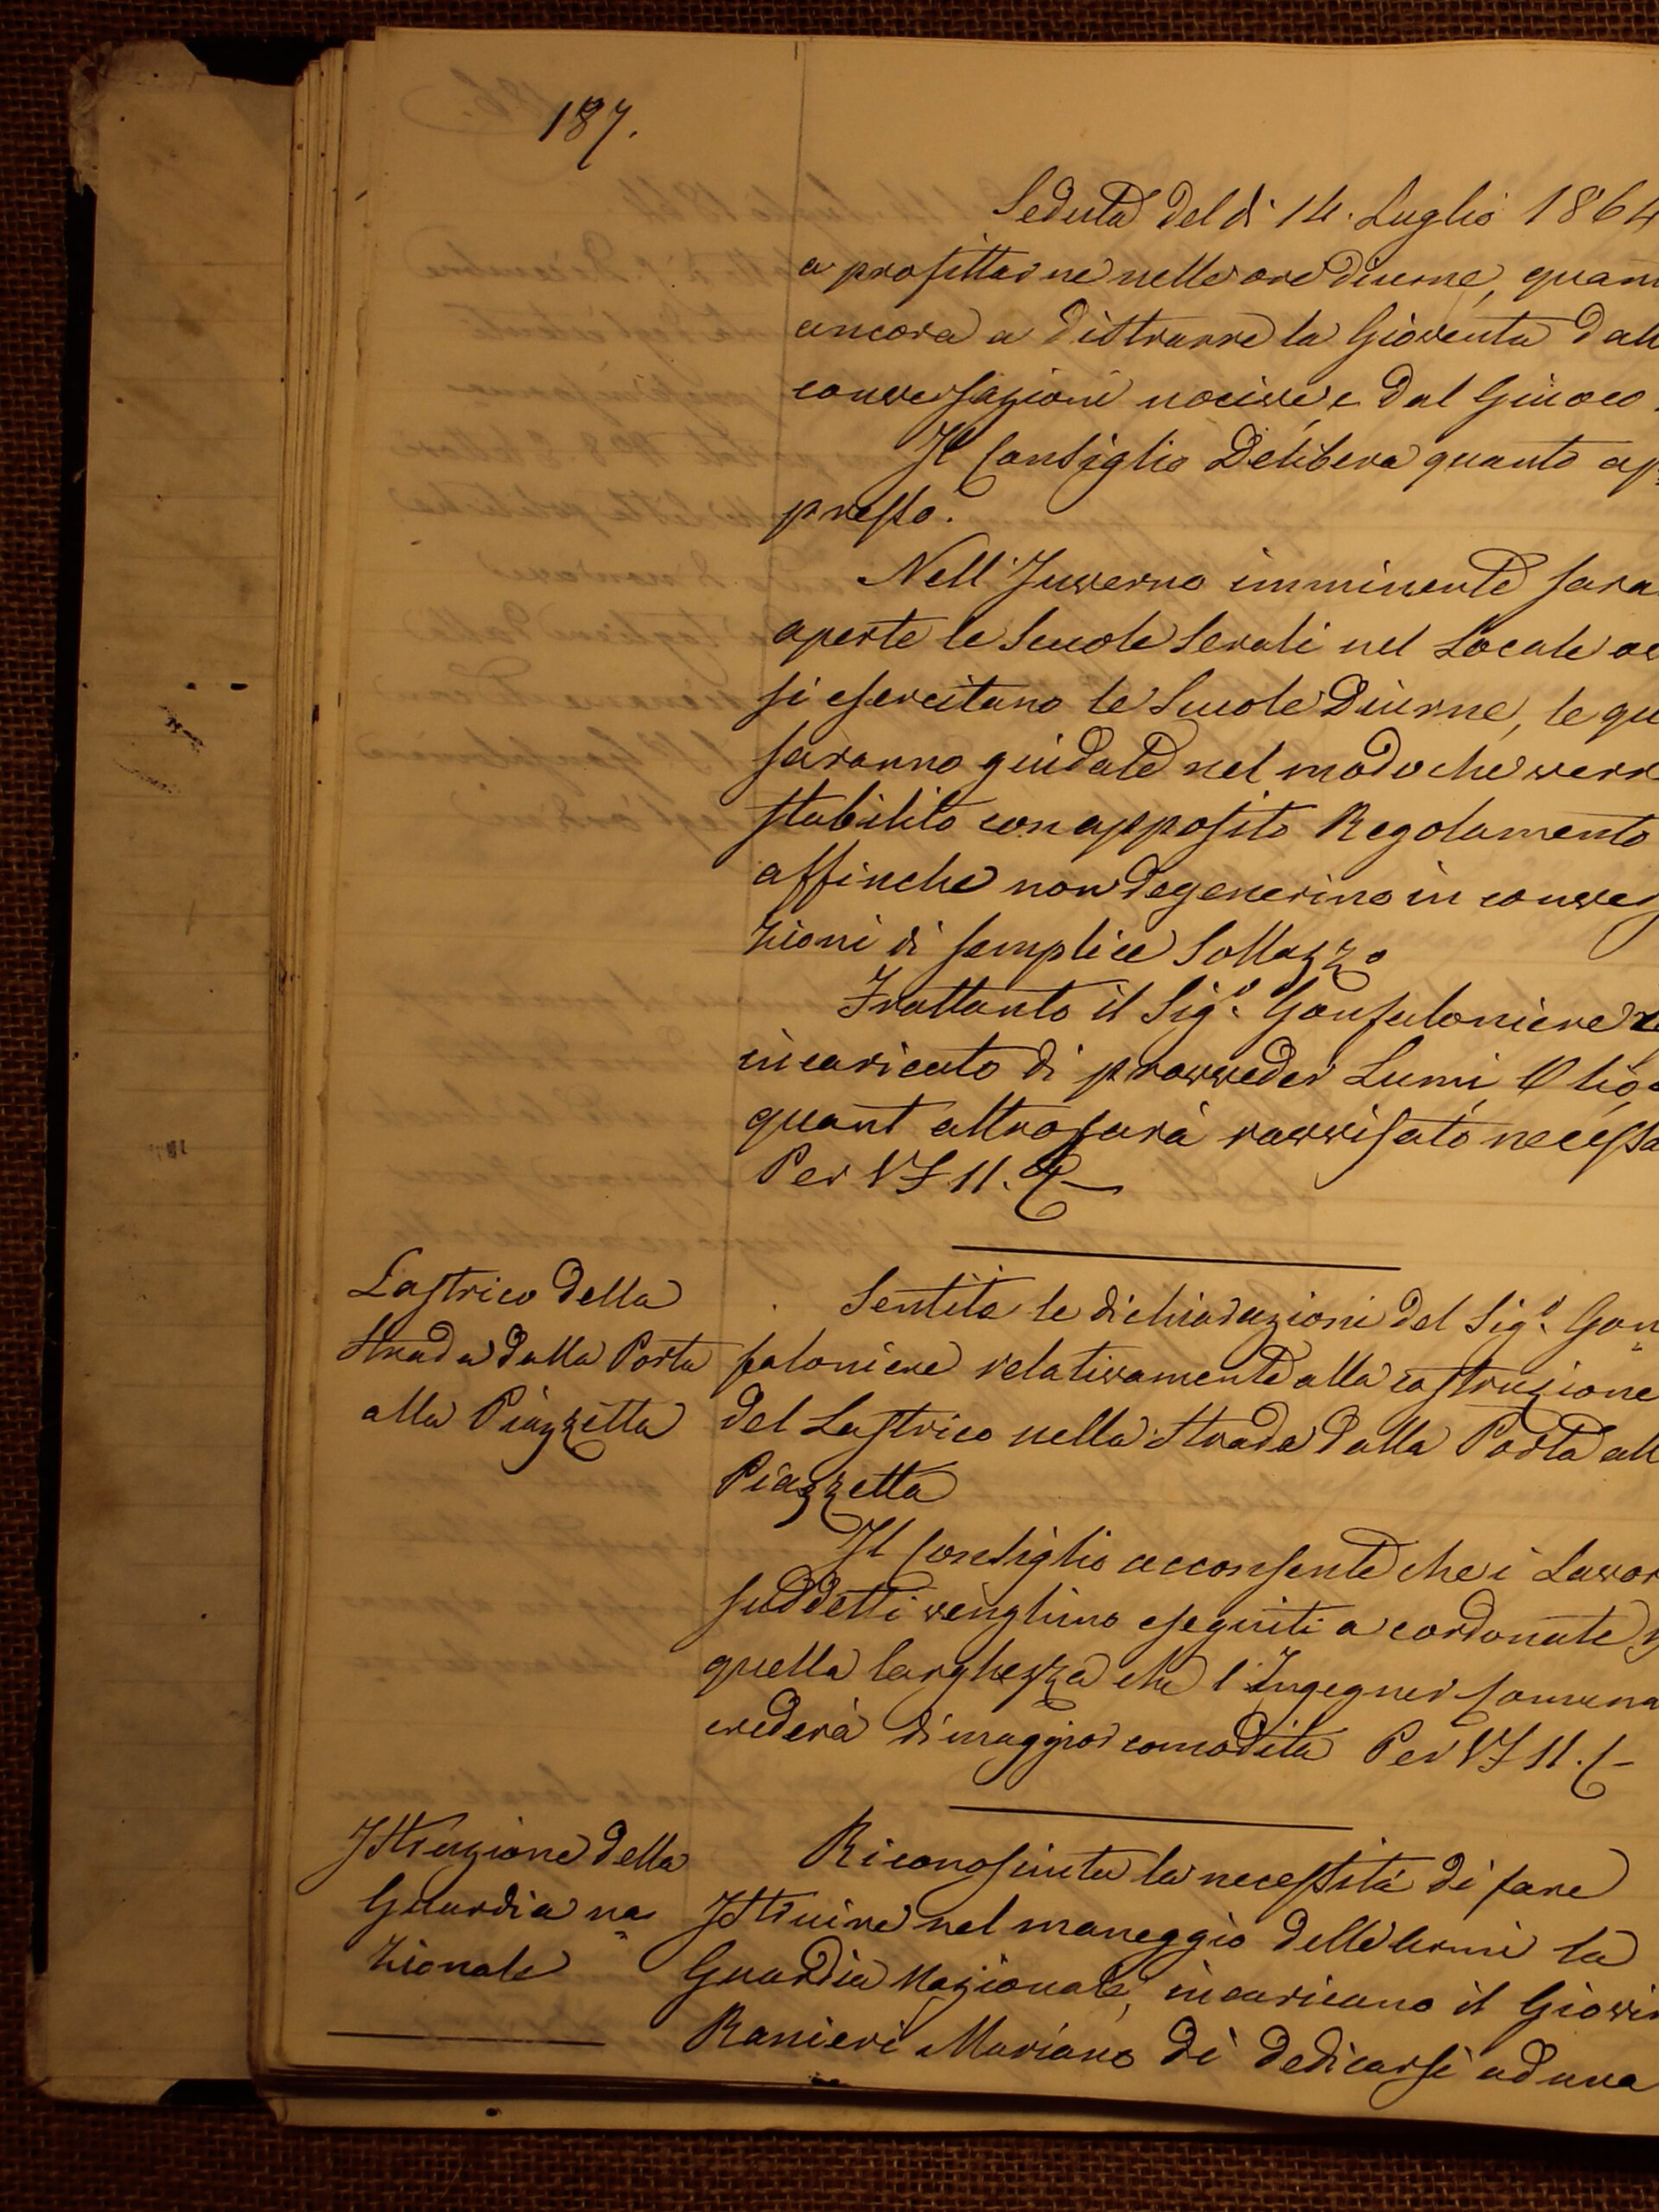 187.
Seduta del dì 14. Luglio 1864
a profittarne nelle ore diurne, quan
ancora a distrarre la Gioventù dall
conversazioni nocive, e dal Giuoco.
Il Consiglio Delibera quanto ap=
presso.
Nell'Inverno imminente sara
aperte le Scuole Serali nel Locale
si esercitano le Scuole Diurne, le qu
saranno guidate nel modo che verr
stabilito con apposito Regolamento
affinche non degenerino in conve
zioni di semplice Sollazzo
Frattanto il Sig.º Gonfaloniere
incaricato di provveder Lumi, Olio,
quant altro sarà ravvisato necessa
Per VF 11.
Lastrico della
Strada dalla Porta
alla Piazzetta
Sentite le dichiarazioni del Sig.º Gon=
faloniere relativamente alla costruzione
del Lastrico nella Strada dalla Porta all
Piazzetta
Il Consiglio acconsente che i Lavor
suddetti venghino eseguiti a cordonate
quella larghezza che l'Ingegner Comuna
crederà di maggior comodità Per VF 11.
Istruzione della
Guardia na=
zionale
Riconosciuta la necessità di fare
Istruire nel maneggio delle armi la
Guardia Nazionale, incaricano il Giovin
Ranieri Mariano di dedicarsi ad una